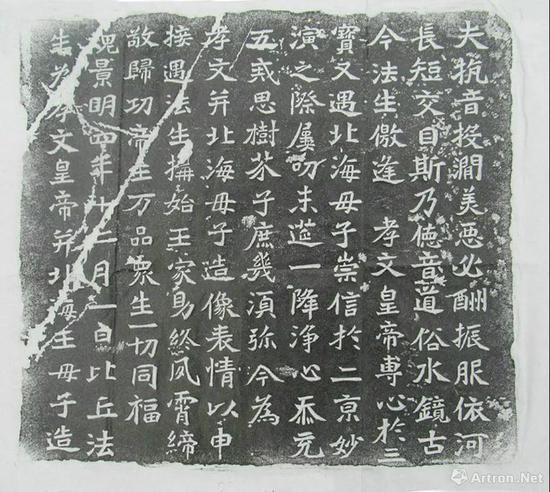 夫抗音投澗美惡必酬振服依河
長短交目斯乃德音道俗水鏡古
今法生儌逢 孝文皇帝專心於三
寶又遇北海母子崇信於二京妙
演之際屢叨末筵一降淨心忝充
五戒思樹芥子庶幾須彌今為
孝文并北海母子造像表情以申
接遇法生構始王家助終夙霄締
敬歸功帝王万品眾生一切同福
魏景明四年十二月一日比丘法
生為孝文皇帝并北海王母子造
Artron.Net